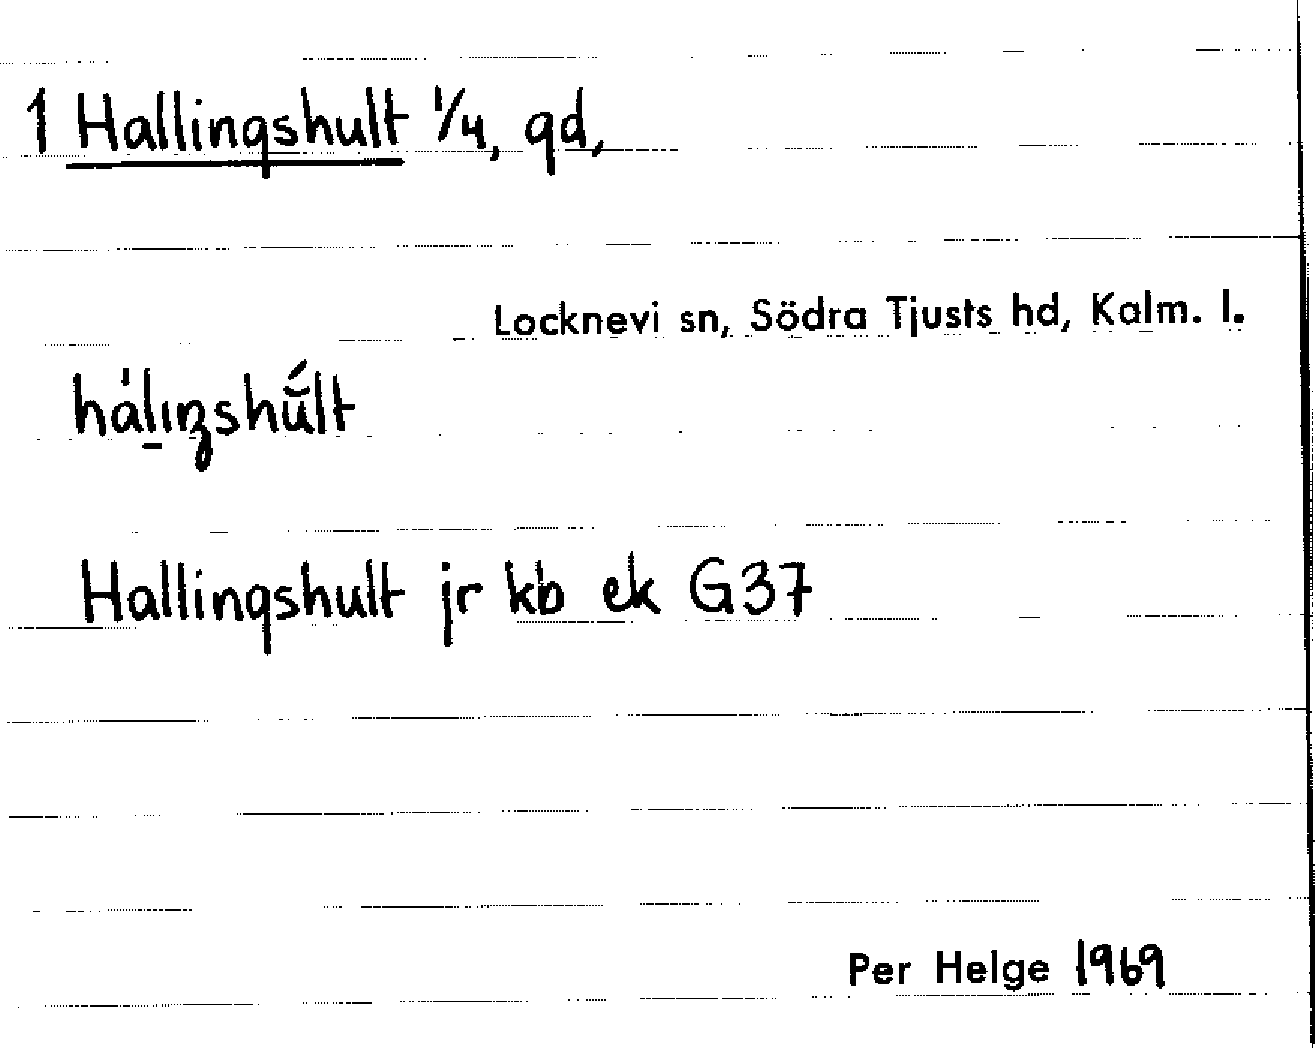 1 Hallingshult 1/4, gd,
Locknevi sn, Södra Tjusts hd, Kalm. l.
hálıŋshúlt
Hallingshult jr kb ek G37
Per Helge 1969